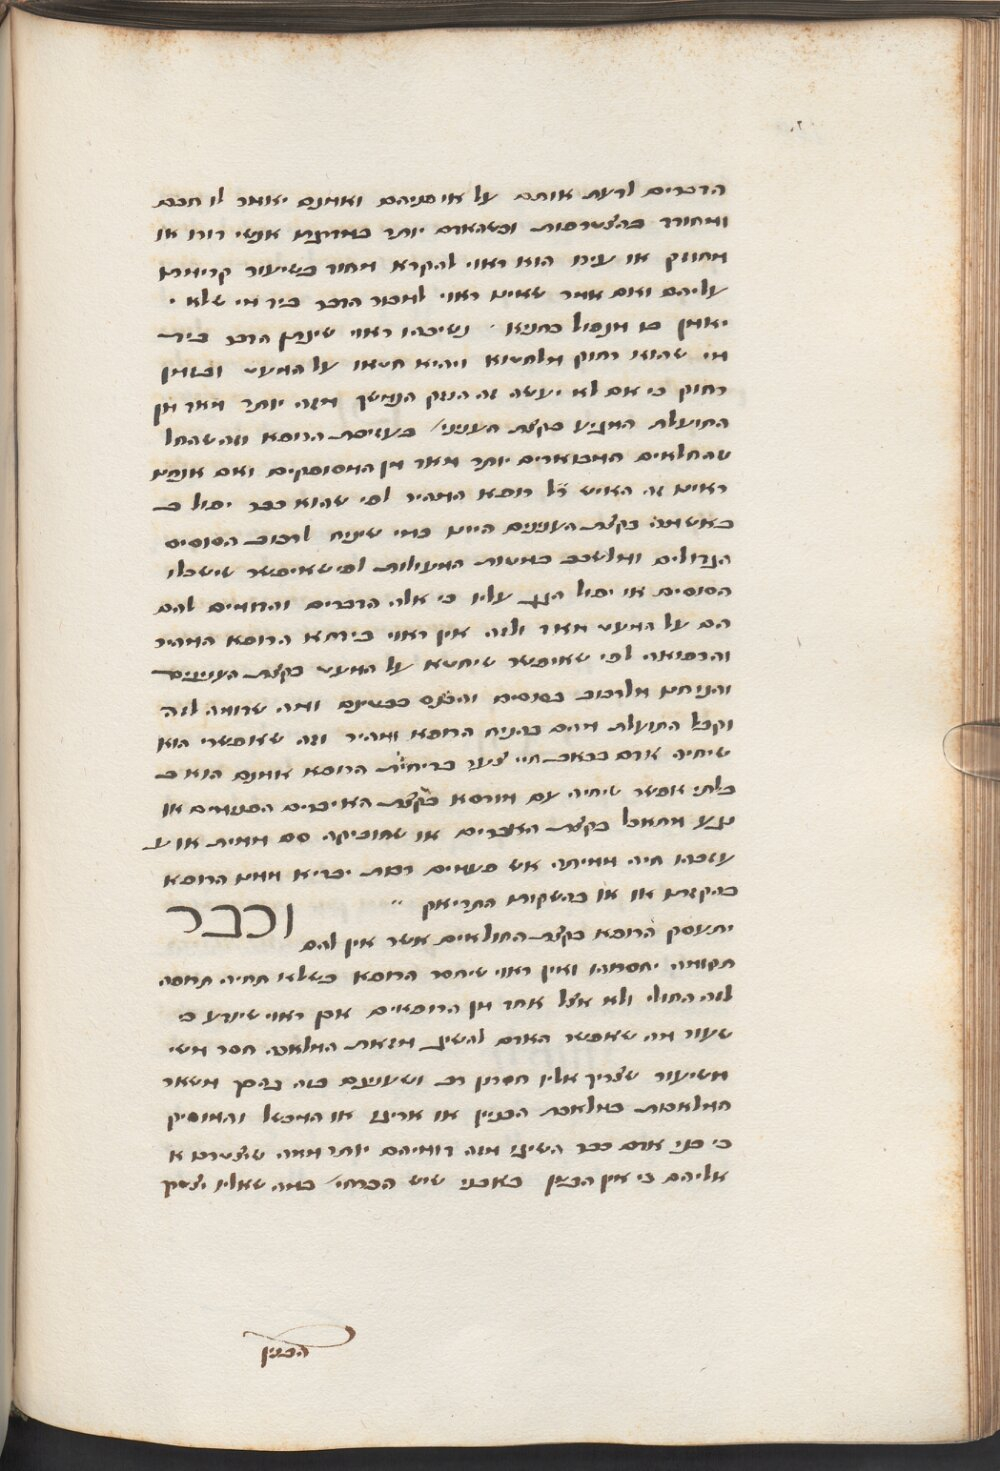 הדברים לדעת אותם על אופניהם ואמנם יאמר לו חכם
ומחודד בהצטרפות וכשהאדם יותר במדרגת אנשי דורו או
מחוזק או עירו הוא ראוי להקרא מהור כשיעור קדימתם
עליהם ואם אמר שאינו ראוי למכור הדבר ביד מי שלא
יאמן בו מנפול בחטא נשיבהו ראוי שינתן הדבר ביד
מי שהוא רחוק מלחטוא ויהיא חטאו על המעט ובזמן
רחוק כי אם לא יעשה זה הנזק הנמשך מזה יותר מאד מן
התועלת המגיע בקצת העניני בעזיבת הרופא וזה שהחל
שהחלאים המבוארים יותר מאד מן המסופקים ואם אנחנו
ראינו זה האיש ר״ל רופא המהיר לפי שהוא כבר יפול ב
באשמה בקצת הענינים היינו כמי שיניח לרכוב הסוסים
הגדולים ומלשכב במטות המעולות לפי שאיפשר שישכלו
הסוסים או יפול הגג עליו כי אלה הדברים והדומים להם
הם על המעט מאד ולזה אין ראוי בידחא הרופא המהיר
והרפואה לפי שאיפשר שיחטא על המעט בקצת העניינים
והניחם מלרכוב בסוסים והכנס בבטינם ומה שדומה לזה
וקבל התועלת מהם בהנית הרופא ומהיר וזה שאפשרי הוא
שיחיה אדם בכאב חיי צער בדיחית הרופא אמנם הוא ב
בלתי אפשר שיחיה עם מורסא בקצת האיברים הפנימים או
נגע מתאכל בקצת האברים או שחוביקה סם ממית או ע
עקבהו חיה ממיתה אש פעמים רבות יבריא ממנו הרופא
בהקזתם או או בהשקות התריאק
וכבר
יתעסק הרופא בקצת החולאים אשר אין להם
תקומה יחסמהו ואין ראוי שיחסר הרופא בשלא תהיה תרופה
לזה החולי ולא אצל אחד מן הרופאים אכן ראוי שיודע כי
שעור מה שאפשר האדם להשיג מזאת המלאכה חסר משי
משיעור שצריך אליו חסרון רב ושעוינם בזה בהפך משאר
המלאכות כמלאכת הבניין או אריגג או המבשל והמוסיק
כי בני אדם כבר השיגו מזה דומיהם יותר ממה שיצטרם א
אליהם כי אין הבנין באבני שיש הכרחי כמה שאליו יצטרך
הבנין